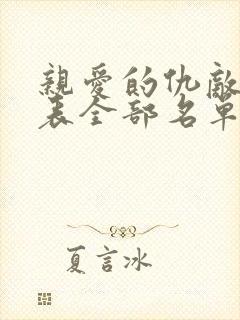 親愛的仇敵
表全部名單
夏言冰